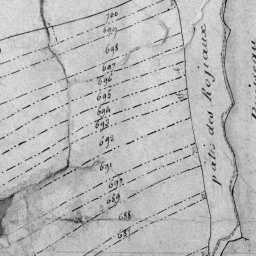 700
699
698
697
696
695
694
693
692
691
690
689
688
687
patis des Rojeaux